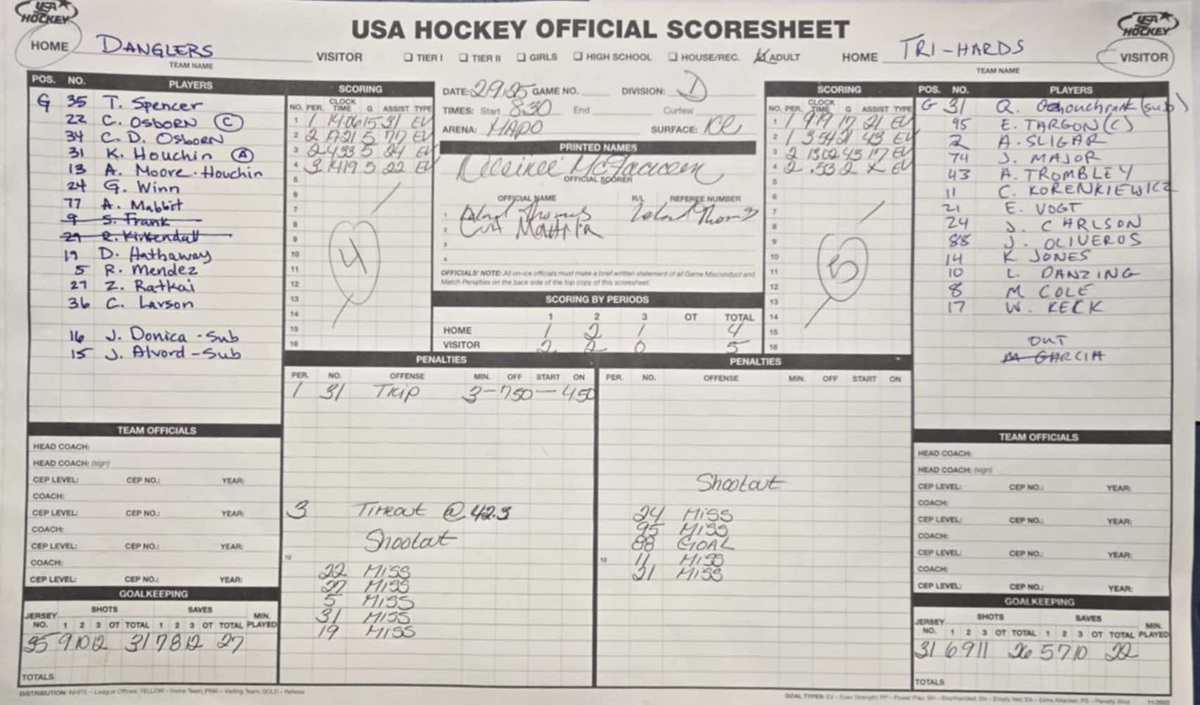 USA HOCKEY
USA HOCKEY OFFICIAL SCORESHEET
USA HOCKEY
HOME DANGLERS VISITOR
TEAM NAME
☐ TIER I ☐ TIER II ☐ GIRLS ☐ HIGH SCHOOL ☐ HOUSE/REC. ADULT
HOME TRI-HARDS VISITOR
TEAM NAME
POS. NO. PLAYERS
G 35 T. Spencer
22 C. OSBORN (C)
34 C. D. OSBORN
31 K. HOUCHIN (A)
13 A. Moore-Houchin
24 G. Winn
77 A. Mabbit
9 S. Frank
29 R. Kirkendall
19 D. Hathaway
5 R. Mendez
27 Z. Ratkai
36 C. Larson
16 J. Donica - Sub
15 J. Alvord - Sub
SCORING
NO. PER. CLOCK TIME G ASSIST TYPE
1 1 1406 15 31 EV
2 2 1721 5 77 EV
3 2 433 5 24 EV
4 3 1419 5 22 EV
5
6
7
8
9
10
11
12
13
14
15
16
4
DATE: GAME NO. DIVISION: D
TIMES: Start 8:30 End Curfew
ARENA: HAPO SURFACE: ICE
PRINTED NAMES
OFFICIAL SCORER
OFFICIAL NAME R/L REFEREE NUMBER
1
2
3
4
OFFICIALS' NOTE: All on-ice officials must make a brief written statement of all Game Misconduct and
Match Penalties on the back side of the top copy of this scoresheet.
SCORING BY PERIODS
1 2 3 OT TOTAL
HOME 1 2 1 4
VISITOR 2 2 0 5
SCORING
NO. PER. CLOCK TIME G ASSIST TYPE
1 1 919 17 21 EV
2 1 354 21 43 EV
3 2 1302 43 17 EV
4 2 .53 2 X EV
5
6
7
8
9
10
11
12
13
14
15
16
5
POS. NO. PLAYERS
G 31 Q. (sub)
95 E. TARGON (C)
2 A. SLIGAR
74 J. MAJOR
43 A. TROMBLEY
11 C. KORENKIEWICZ
21 E. VOGT
24 J. CARLSON
88 J. OLIVEROS
14 K. JONES
10 L. DANZING
8 M. COLE
17 W. KECK
OUT
GARCIA
PENALTIES
PER. NO. OFFENSE MIN. OFF START ON
1 31 TRIP 3 - 750 - 450
3 TIMEOUT @ 42.3
Shootout
22 MISS
27 MISS
5 MISS
31 MISS
19 MISS
PENALTIES
PER. NO. OFFENSE MIN. OFF START ON
Shootout
24 MISS
95 MISS
88 GOAL
11 MISS
21 MISS
TEAM OFFICIALS
HEAD COACH:
HEAD COACH: (sign)
CEP LEVEL: CEP NO.: YEAR:
COACH:
CEP LEVEL: CEP NO.: YEAR:
COACH:
CEP LEVEL: CEP NO.: YEAR:
COACH:
CEP LEVEL: CEP NO.: YEAR:
GOALKEEPING
JERSEY NO. SHOTS 1 2 3 OT TOTAL SAVES 1 2 3 OT TOTAL MIN. PLAYED
35 9 10 12 31 7 8 12 27
TOTALS
TEAM OFFICIALS
HEAD COACH:
HEAD COACH: (sign)
CEP LEVEL: CEP NO.: YEAR:
COACH:
CEP LEVEL: CEP NO.: YEAR:
COACH:
CEP LEVEL: CEP NO.: YEAR:
COACH:
CEP LEVEL: CEP NO.: YEAR:
GOALKEEPING
JERSEY NO. SHOTS 1 2 3 OT TOTAL SAVES 1 2 3 OT TOTAL MIN. PLAYED
31 6 9 11 26 5 7 10 22
TOTALS
DISTRIBUTION: WHITE – League Offices, YELLOW – Home Team, PINK – Visiting Team, GOLD – Referee
GOAL TYPES: EV - Even Strength; PP - Power Play; SH - Shorthanded; EN - Empty Net; EA - Extra Attacker; PS - Penalty Shot